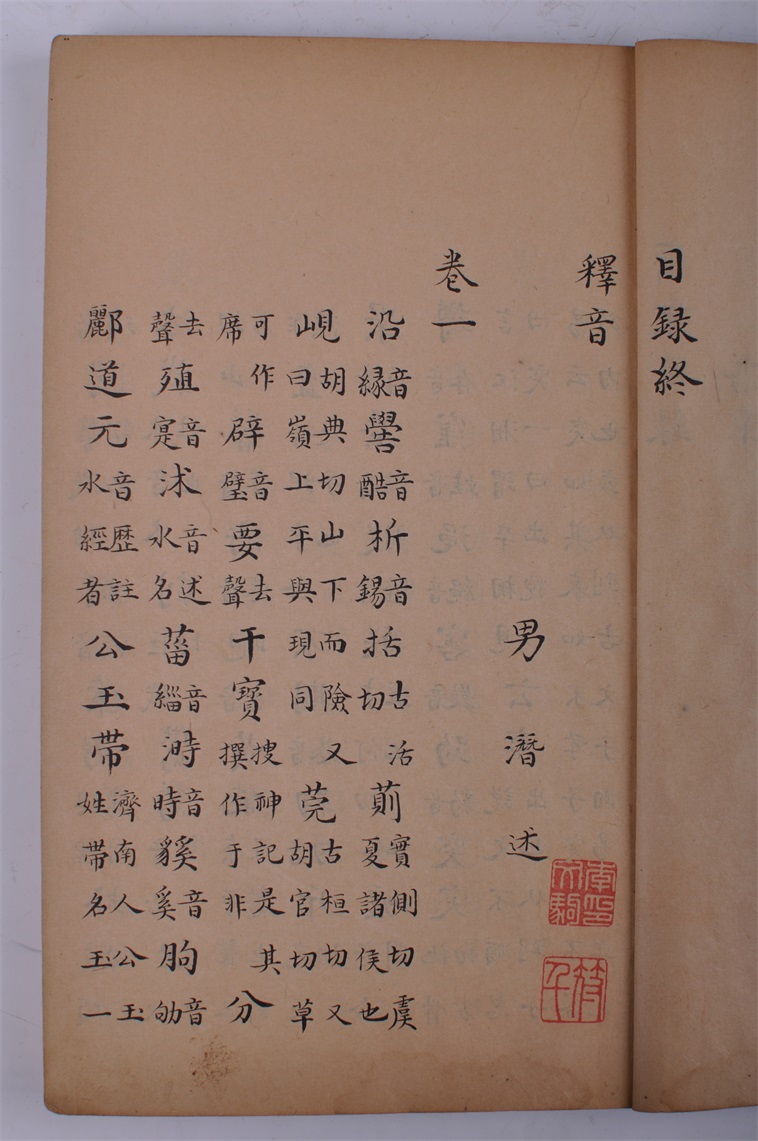 目録終
釋音
男潛述
卷一
沿音緣嚳音酷析音錫括古活切萴實側切虞夏諸侯也
峴胡典切山下而險又曰嶺上平與現同莞古桓切又胡官切草
可作席辟音璧要去聲干寶搜神記是其撰作于非分
去聲殖音寔沭音述水名葘音緇溡音時貕音奚朐音劬
酈道元音歷註水經者公玉帶濟南人公玉姓帶名玉一